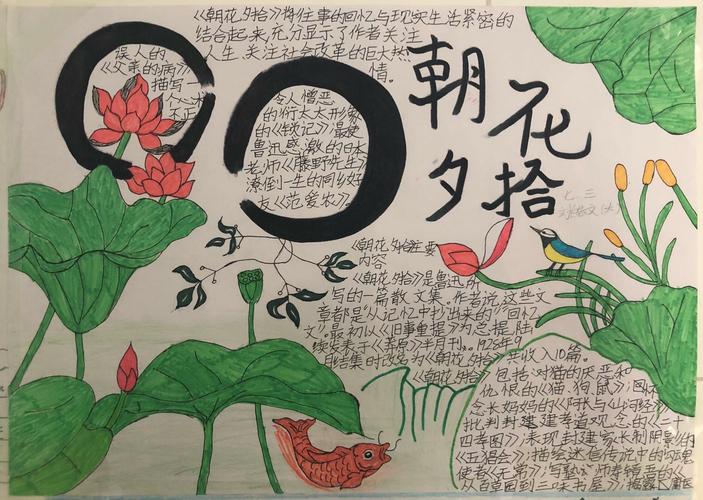 《朝花夕拾》将往事的回忆与现实生活紧密的
结合起来,充分显示了作者关注
人生、关注社会改革的巨大热
情。
误人的
《父亲的病》
描写一
个心术
不正
令人憎恶
的衍太太形象
的《锁记》;最使
鲁迅感激的日本
老师《藤野先生》
潦倒一生的同乡好
友《范爱农》
朝花
夕拾
七.三
《朝花夕拾》主要
内容
《朝花夕拾》是鲁迅所
写的一篇散文集。作者说,这些文
章都是"从记忆中抄出来的""回忆
文"。最初以《旧事重提》为总提,陆
续发表于《莽原》半月刊。1926年9
月结集时改名为《朝花夕拾》共收入10篇。
《朝花夕拾》包括:对猫的厌恶和
仇恨的《猫.狗.鼠》;回怀
念长妈妈的《阿长与《山河经》》
批判封建孝道观念的《二十
四孝图》;表现封建家长制阴影的
《五猖会》;描绘迷信传说中的勾魂
使者《无常》;写塾师寿镜吾的《
从百草园到三味书屋》;揭露庸医